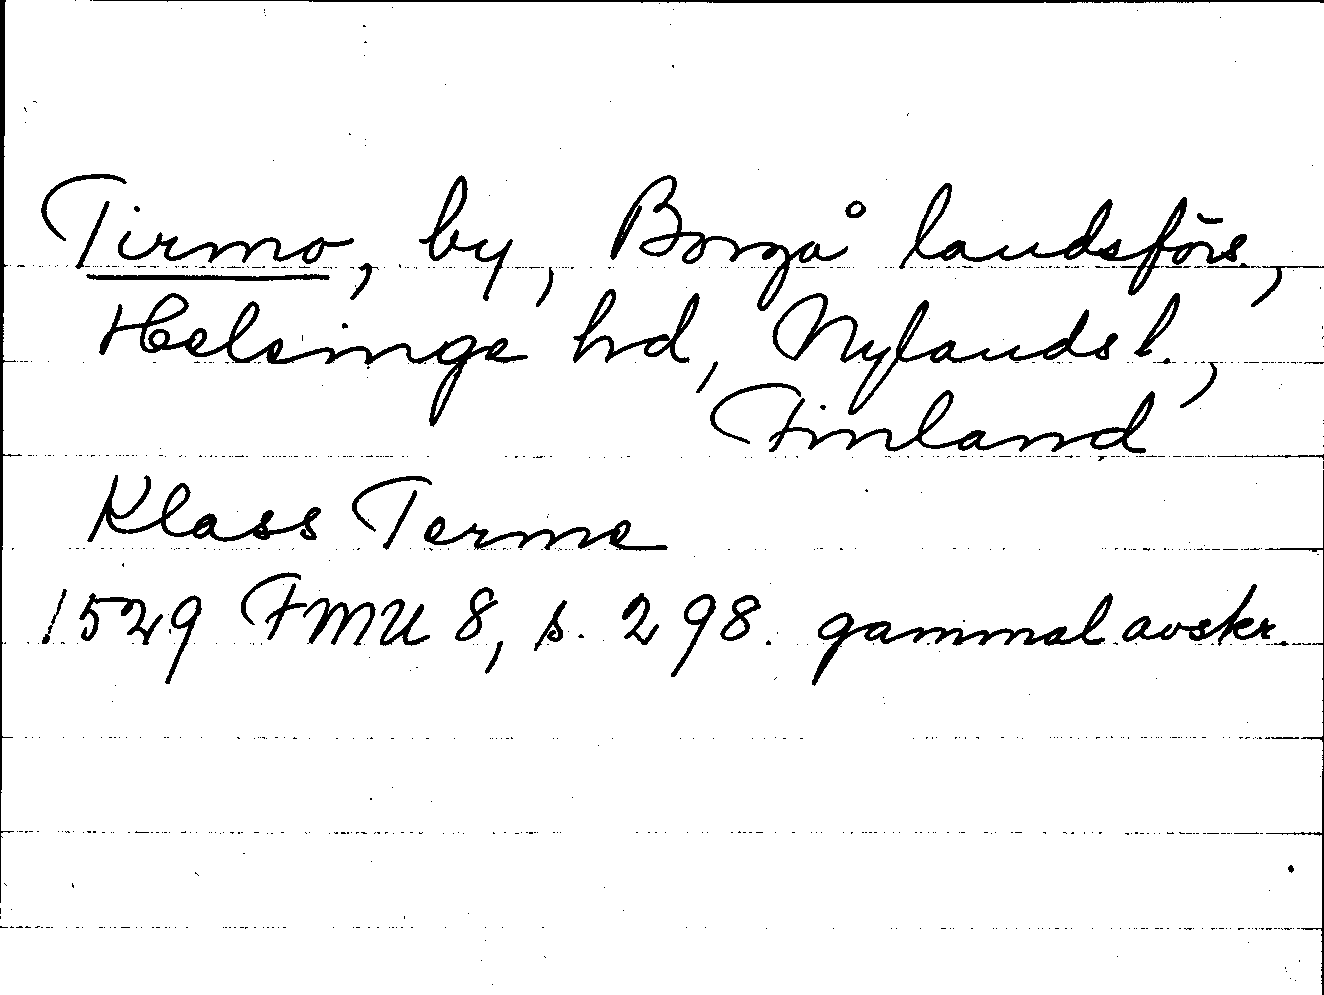 Tirmo, by, Borgå landsförs.,
Helsinge hd, Nylands l.,
Finland
Klass Terme
1529 FMU 8, s. 298. gammal avskr.